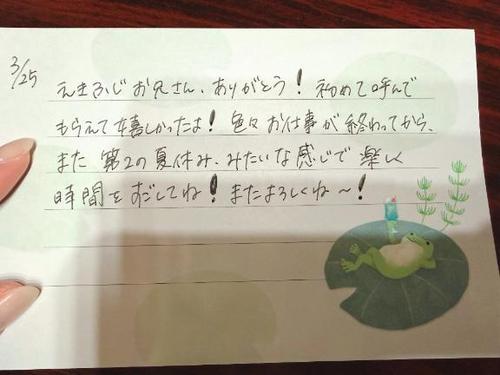 3/25
えきふじお兄さん、ありがとう！初めて呼んで
もらえて嬉しかったよ！色々お仕事が終わってから、
また第2の夏休み、みたいな感じで楽しく
時間をすごしてね！またよろしくね〜！